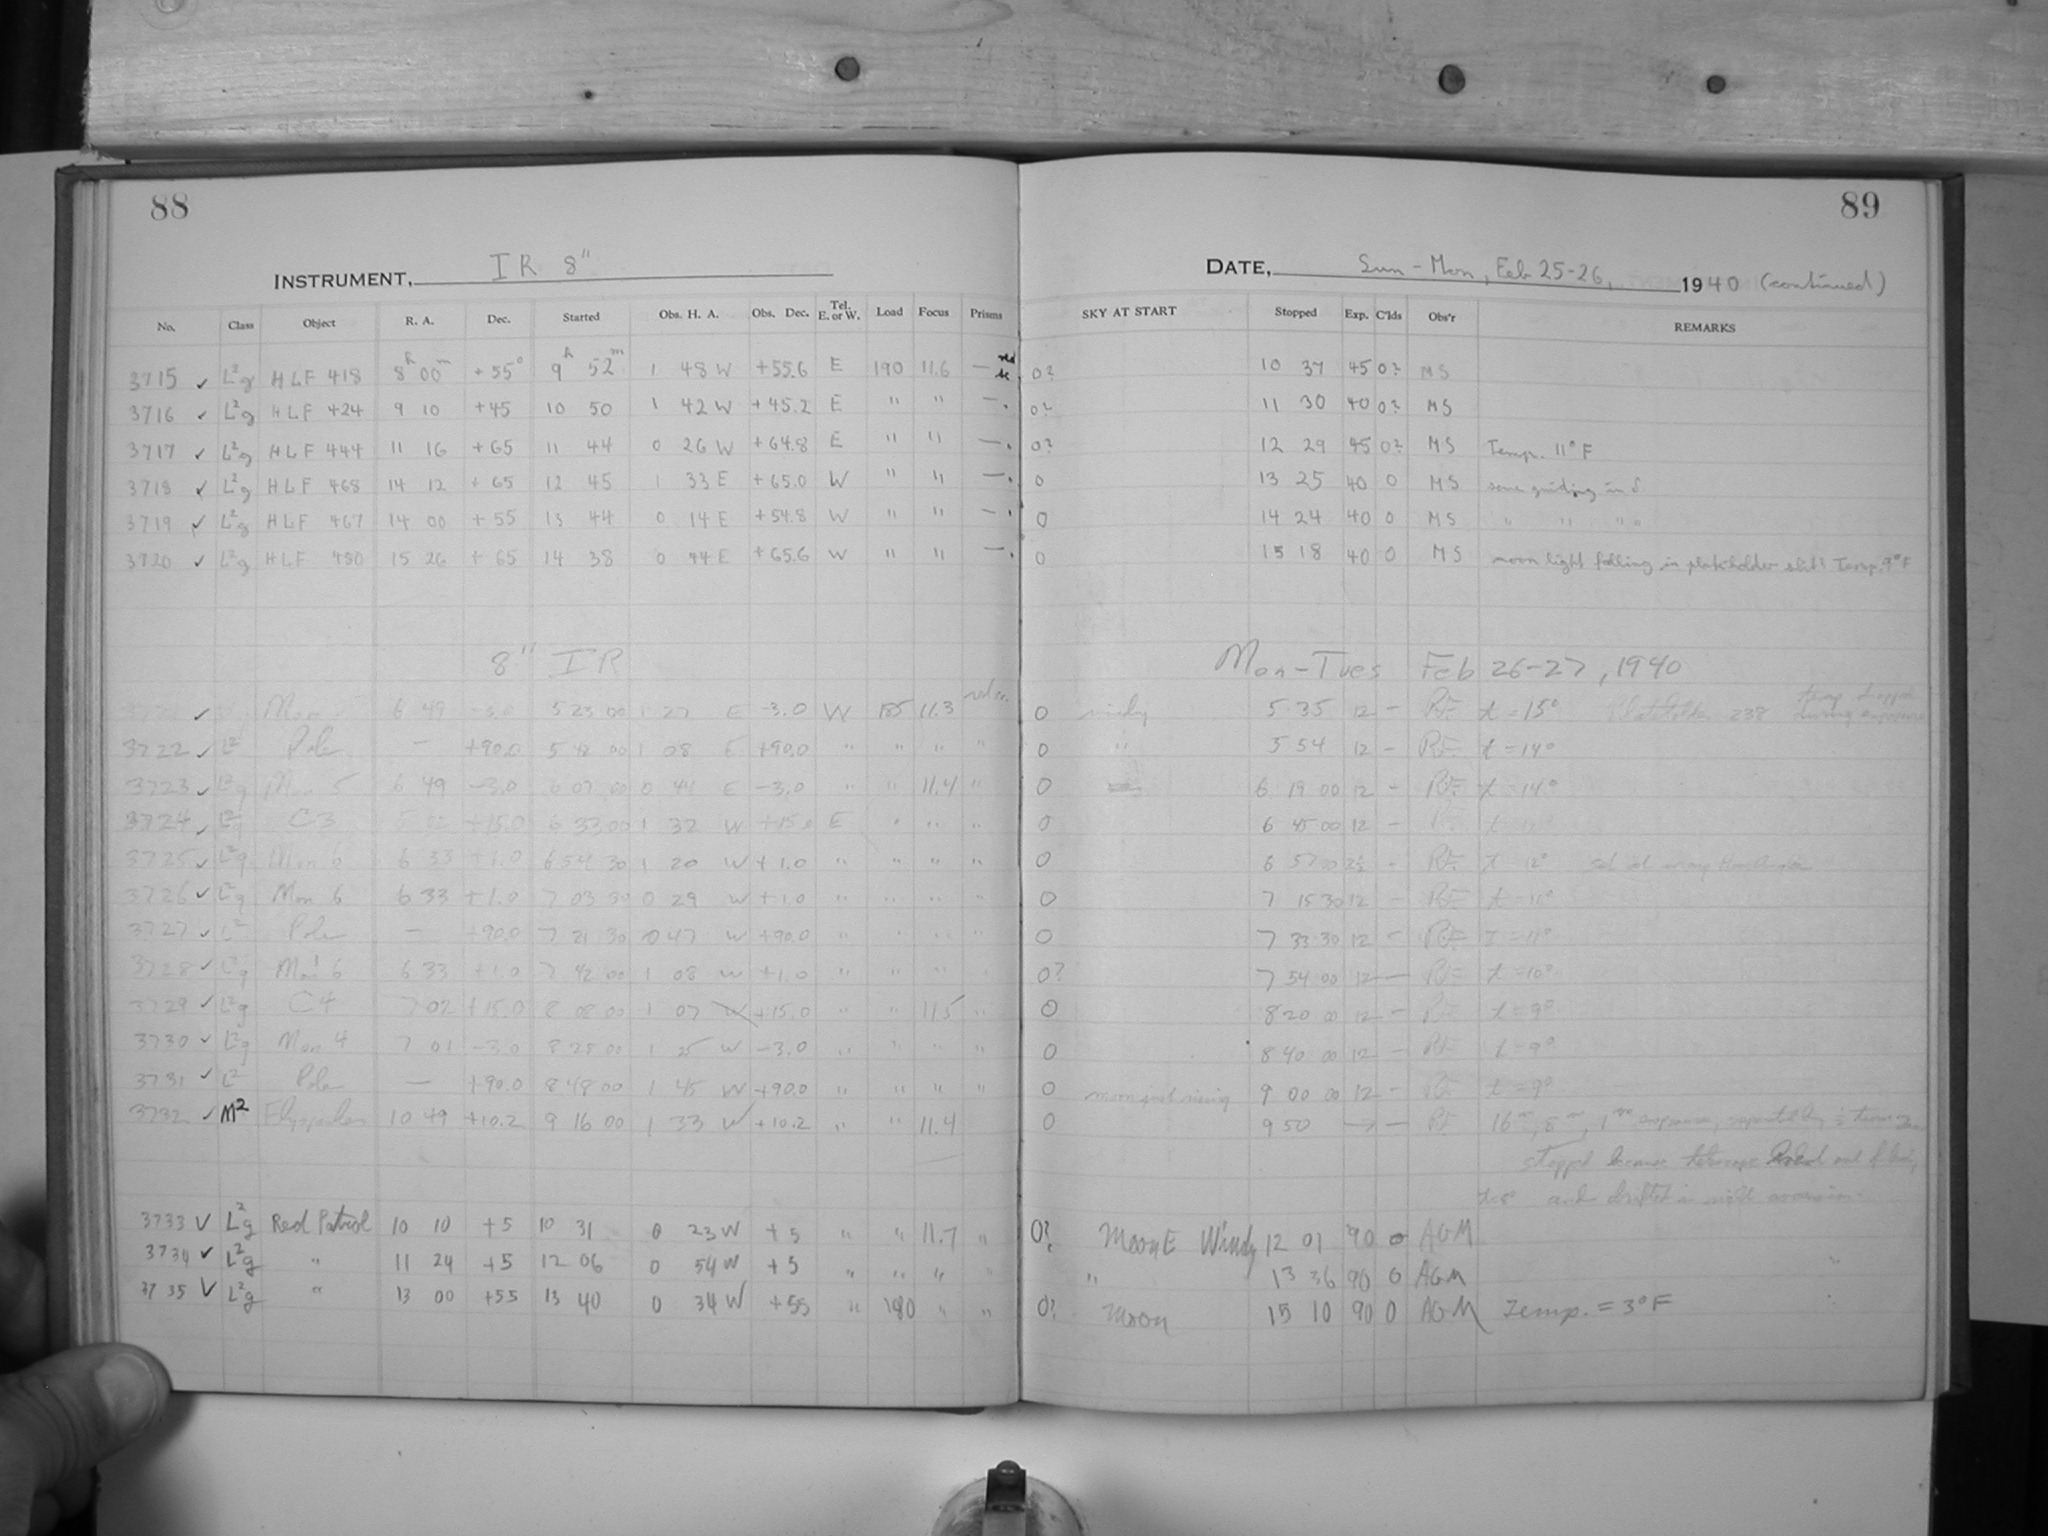 88 89
INSTRUMENT, IR 8" DATE, Sun - Mon, Feb 25-26, 1940 (continued)
No. Class Object R. A. Dec. Started Obs. H. A. Obs. Dec. Tel. E. or W. Load Focus Prisms SKY AT START Stopped Exp. C'lds Obs'r REMARKS
3715 ✓ L²g HLF 418 8h 00m +55° 9h 52m 1 48 W +55.6 E 190 11.6 — red 0? 10 37 45 0? MS
3716 ✓ L²g HLF 424 9 10 +45 10 50 1 42 W +45.2 E " " — . 0? 11 30 40 0? MS
3717 ✓ L²g HLF 444 11 16 +65 11 44 0 26 W +64.8 E " " — . 0? 12 29 45 0? MS Temp. 11° F
3718 ✓ L²g HLF 468 14 12 +65 12 45 1 33 E +65.0 W " " — . 0 13 25 40 0 MS some guiding in δ
3719 ✓ L²g HLF 467 14 00 +55 13 44 0 14 E +54.8 W " " — . 0 14 24 40 0 MS " " " "
3720 ✓ L²g HLF 480 15 26 +65 14 38 0 44 E +65.6 W " " — . 0 15 18 40 0 MS moon light falling in plateholder slit? Temp. 9° F
8" IR Mon-Tues Feb 26-27, 1940
✓ Mon 6 49 -3.0 5 23 00 1 27 E -3.0 W 185 11.3 red 0 windy 5 35 12 - RF t = 15° Plateholder 238 temp dropped during exposure
3722 ✓ L² Pole — +90.0 5 42 00 1 08 E +90.0 " " " " 0 " 5 54 12 - RF t = 14°
3723 ✓ L²g Mon 5 6 49 -3.0 6 07 00 0 41 E -3.0 " " 11.4 " 0 6 19 00 12 - RF t = 14°
3724 ✓ L²g C3 +15.0 6 33 00 1 32 W +15.0 E " " " 0 6 45 00 12 - RF
3725 ✓ L²g Mon 6 6 33 +1.0 6 54 30 1 20 W +1.0 " " " " 0 6 57 00 2½ - RF t = 12° set at wrong Hour Angle
3726 ✓ L²g Mon 6 6 33 +1.0 7 03 30 0 29 W +1.0 " " " " 0 7 15 30 12 - RF t = 11°
3727 ✓ L² Pole — +90.0 7 21 30 0 47 W +90.0 " " " " 0 7 33 30 12 - RF t = 11°
3728 ✓ L²g Mon 6 6 33 +1.0 7 42 00 1 08 W +1.0 " " " " 0? 7 54 00 12 — RF t = 10°
3729 ✓ L²g C4 7 02 +15.0 8 08 00 1 07 W +15.0 " " 11.5 " 0 8 20 00 12 - RF t = 9°
3730 ✓ L²g Mon 4 7 01 -3.0 8 28 00 1 25 W -3.0 " " " " 0 8 40 00 12 - RF t = 9°
3731 ✓ L² Pole — +90.0 8 48 00 1 45 W +90.0 " " " " 0 moon just rising 9 00 00 12 - RF t = 9°
3732 ✓ M² 10 49 +10.2 9 16 00 1 33 W +10.2 " " 11.4 0 9 50 — - RF 16m, 8m, 1m exposures, separated by ½ turn
stopped because telescope out of
t=8° and drifted in right ascension.
3733 ✓ L²g Red Patrol 10 10 +5 10 31 0 23 W +5 " " 11.7 " 0? Moon E Windy 12 01 90 0 AGM
3734 ✓ L²g " 11 24 +5 12 06 0 54 W +5 " " " " " 13 36 90 0 AGM
3735 ✓ L²g " 13 00 +55 13 40 0 34 W +55 " 180 " " 0? Moon 15 10 90 0 AGM Temp. = 3° F